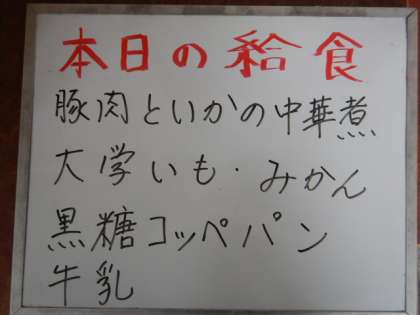 本日の給食
豚肉といかの中華煮
大学いも・みかん
黒糖コッペパン
牛乳